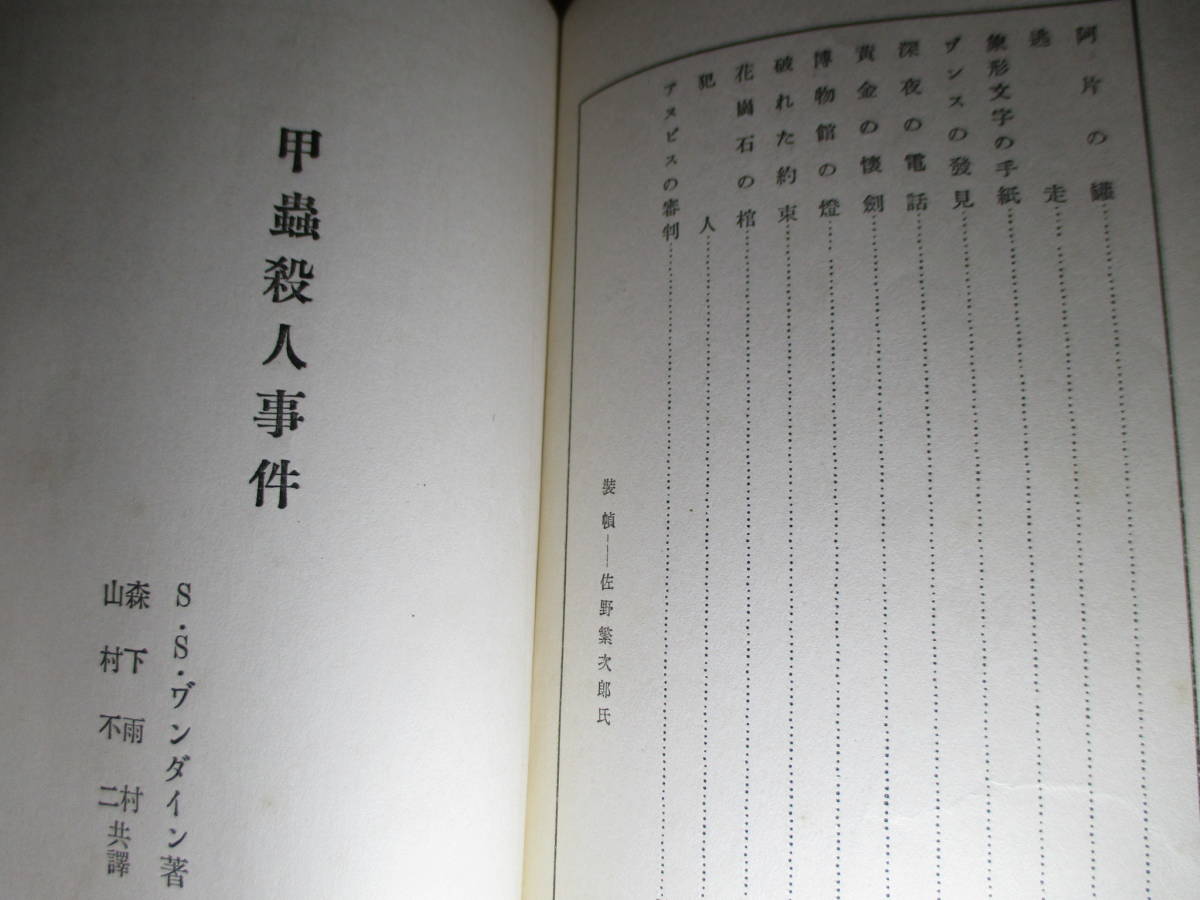 阿片の罐
逃走
象形文字の手紙
ヴンスの發見
深夜の電話
黄金の懐劍
博物館の燈
破れた約束
花崗石の棺
犯人
アヌビスの審判
裝幀――佐野繁次郎氏
甲蟲殺人事件
S・S・ヴンダイン著
森下雨村
山村不二共譯